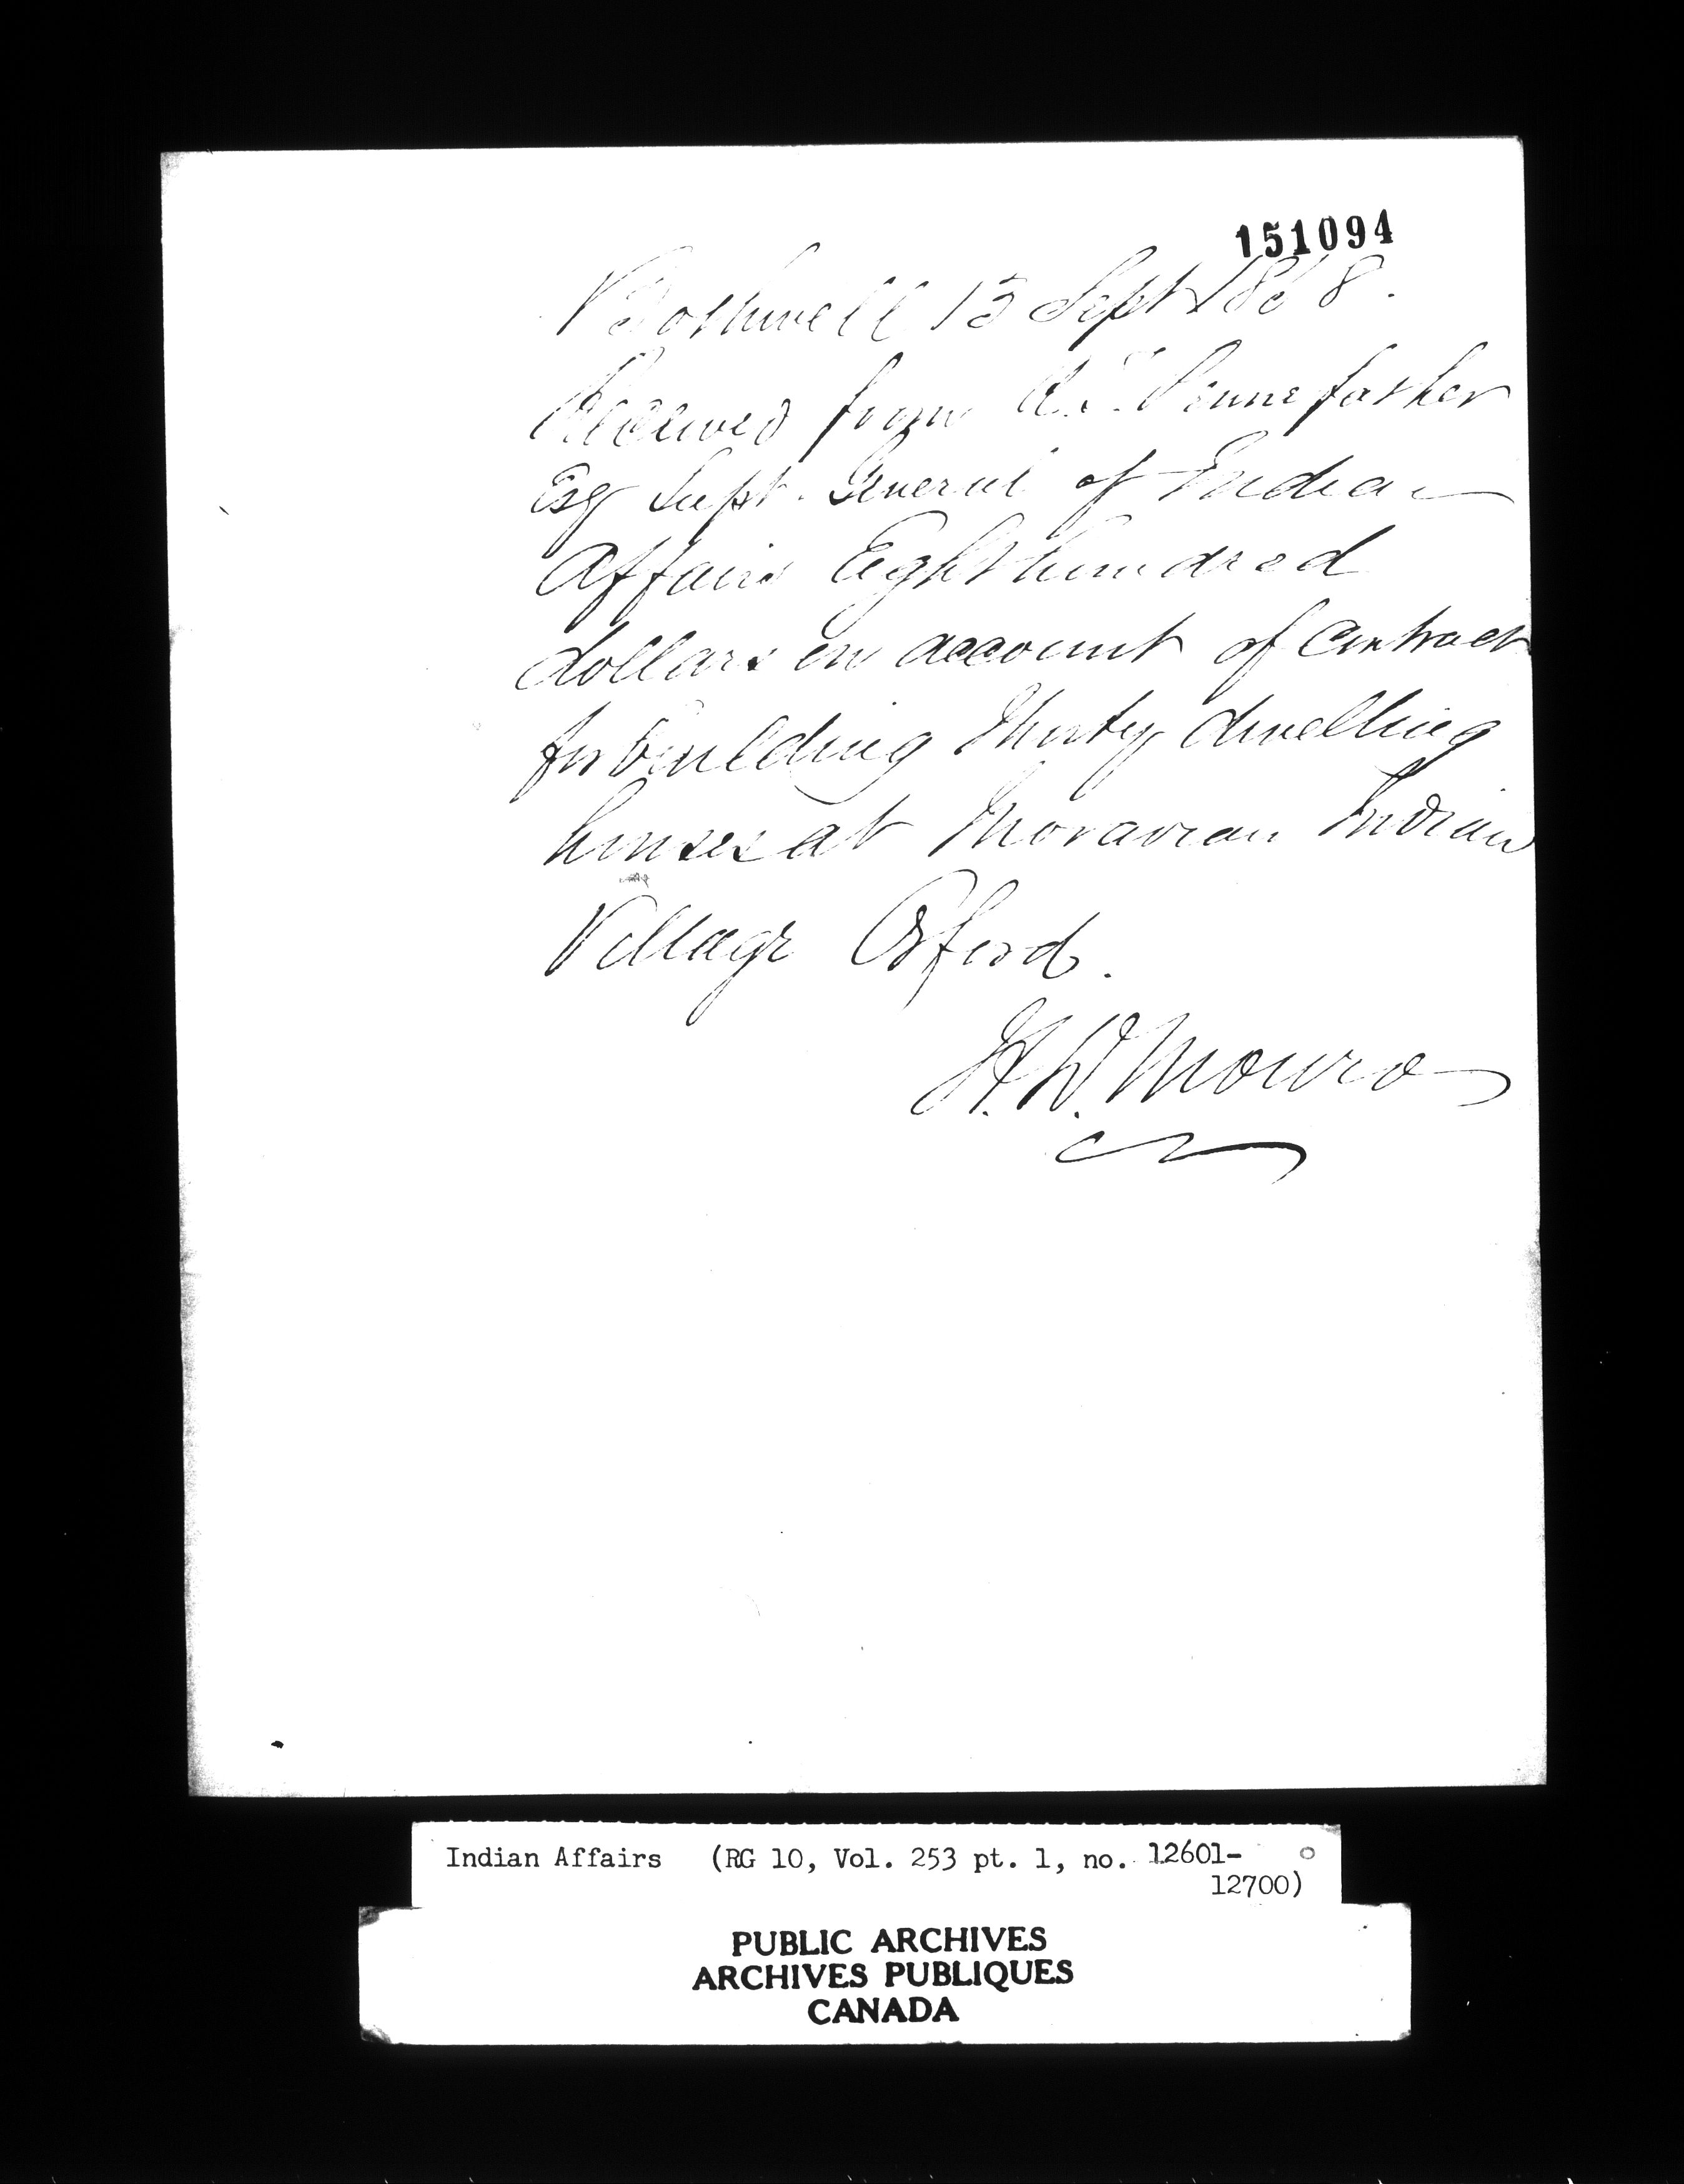 151094
Bothwell 13 Sept 1858.
Received from R. T. Pennefather
Esq Supt. General of Indian
Affairs Eight hundred
dollars on account of Contract
for building Thirty dwelling
houses at Moravian Indian
Village Orford.
H. D. Monro
Indian Affairs (RG 10, Vol. 253 pt. 1, no. 12601-
12700)
PUBLIC ARCHIVES
ARCHIVES PUBLIQUES
CANADA